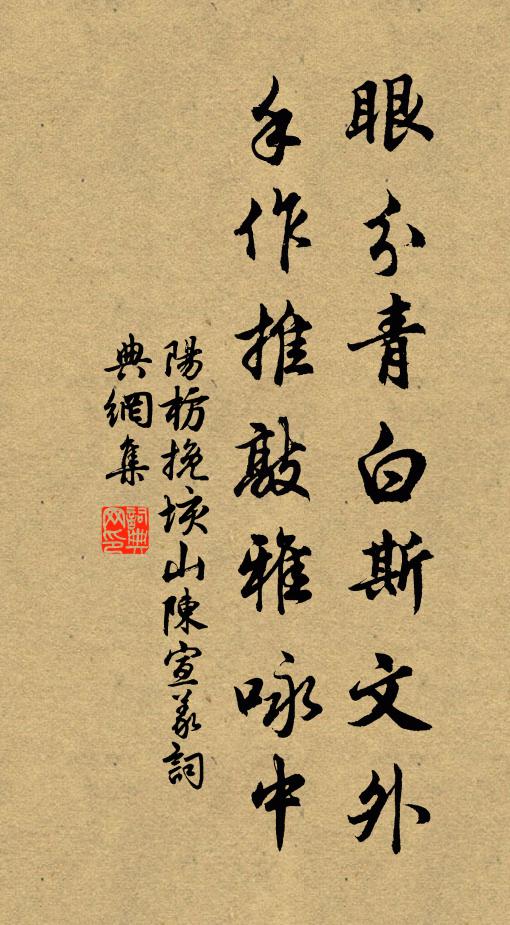 眼分青白斯文外
手作推敲雅咏中
陽枋挽垓山陳宣義詞
典網集
詞典網印